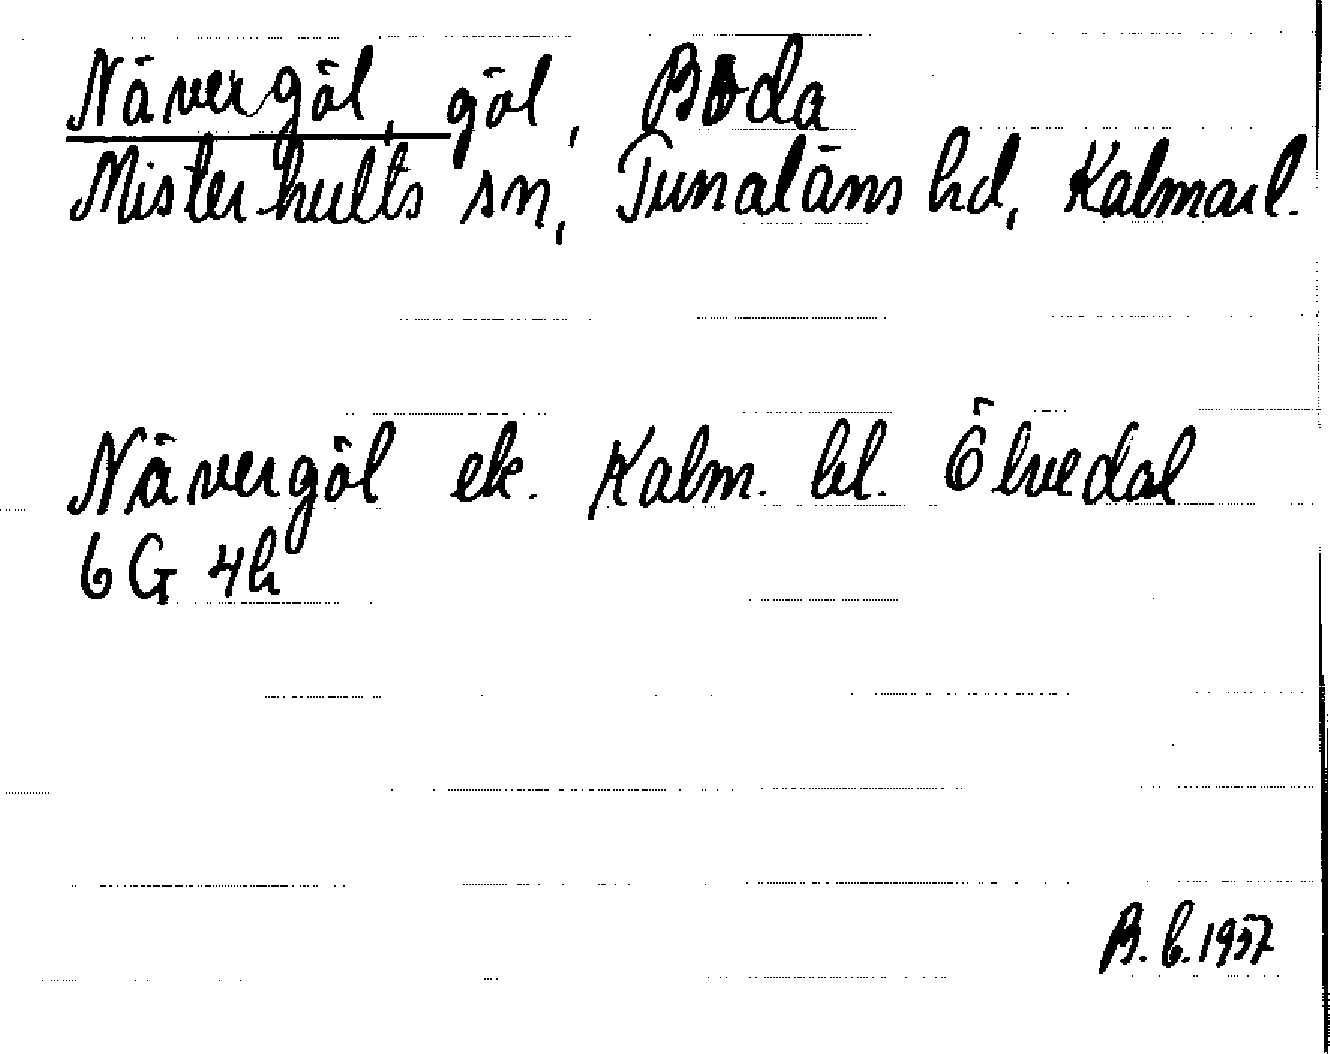 Nävergöl, göl, Boda
Misterhults sn, Tunaläns hd, Kalmarl.
Nävergöl ek. Kalm. bl. Ölvedal
6G 4h
B.L. 1957